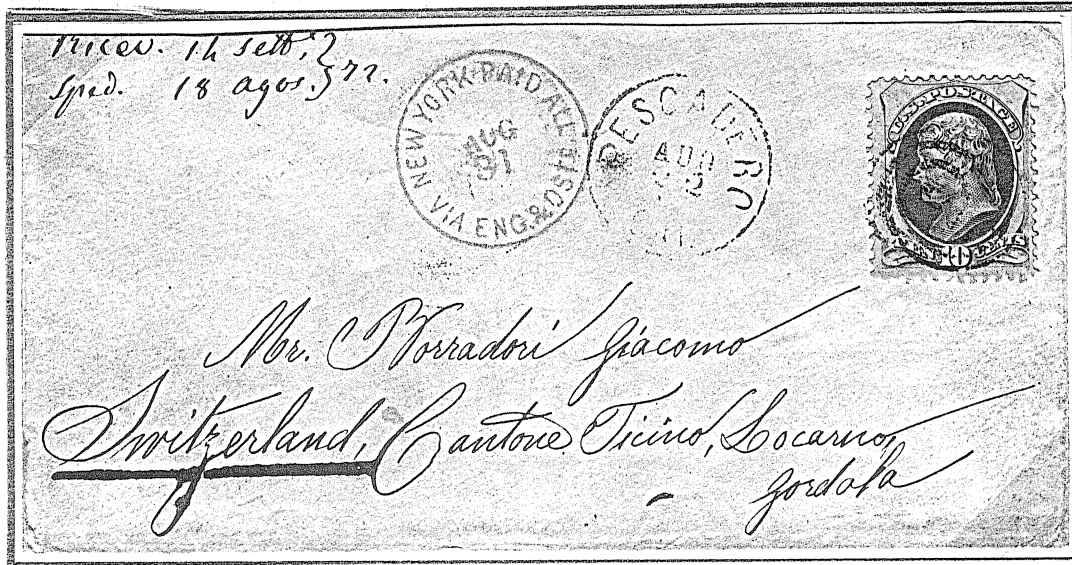 Ricev. 14 sett.
Sped. 18 agos. } 72.
NEW YORK PAID ALL
AUG
31
VIA ENG. & OSTD
PESCADERO
AUG
U.S. POSTAGE
Mr. Borradori Giacomo
Switzerland, Cantone Ticino, Locarno,
Gordola